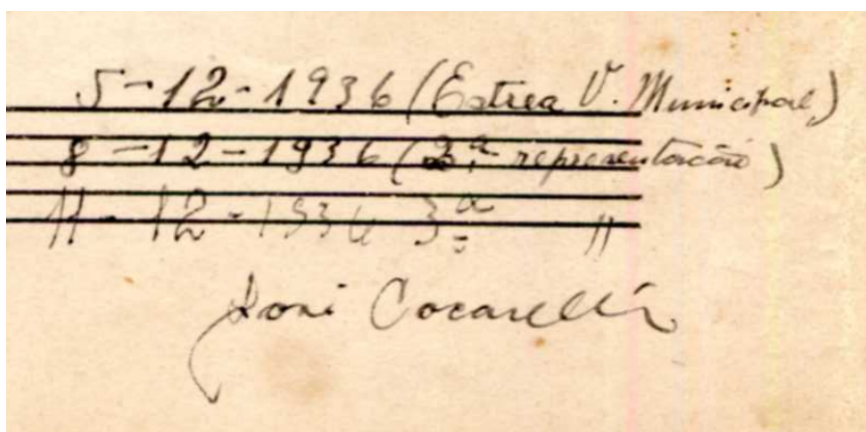 5-12-1936 (Estrea V. Municipal)
8-12-1936 (2.ª representação)
11-12-1936 3.ª "
Cocarelli